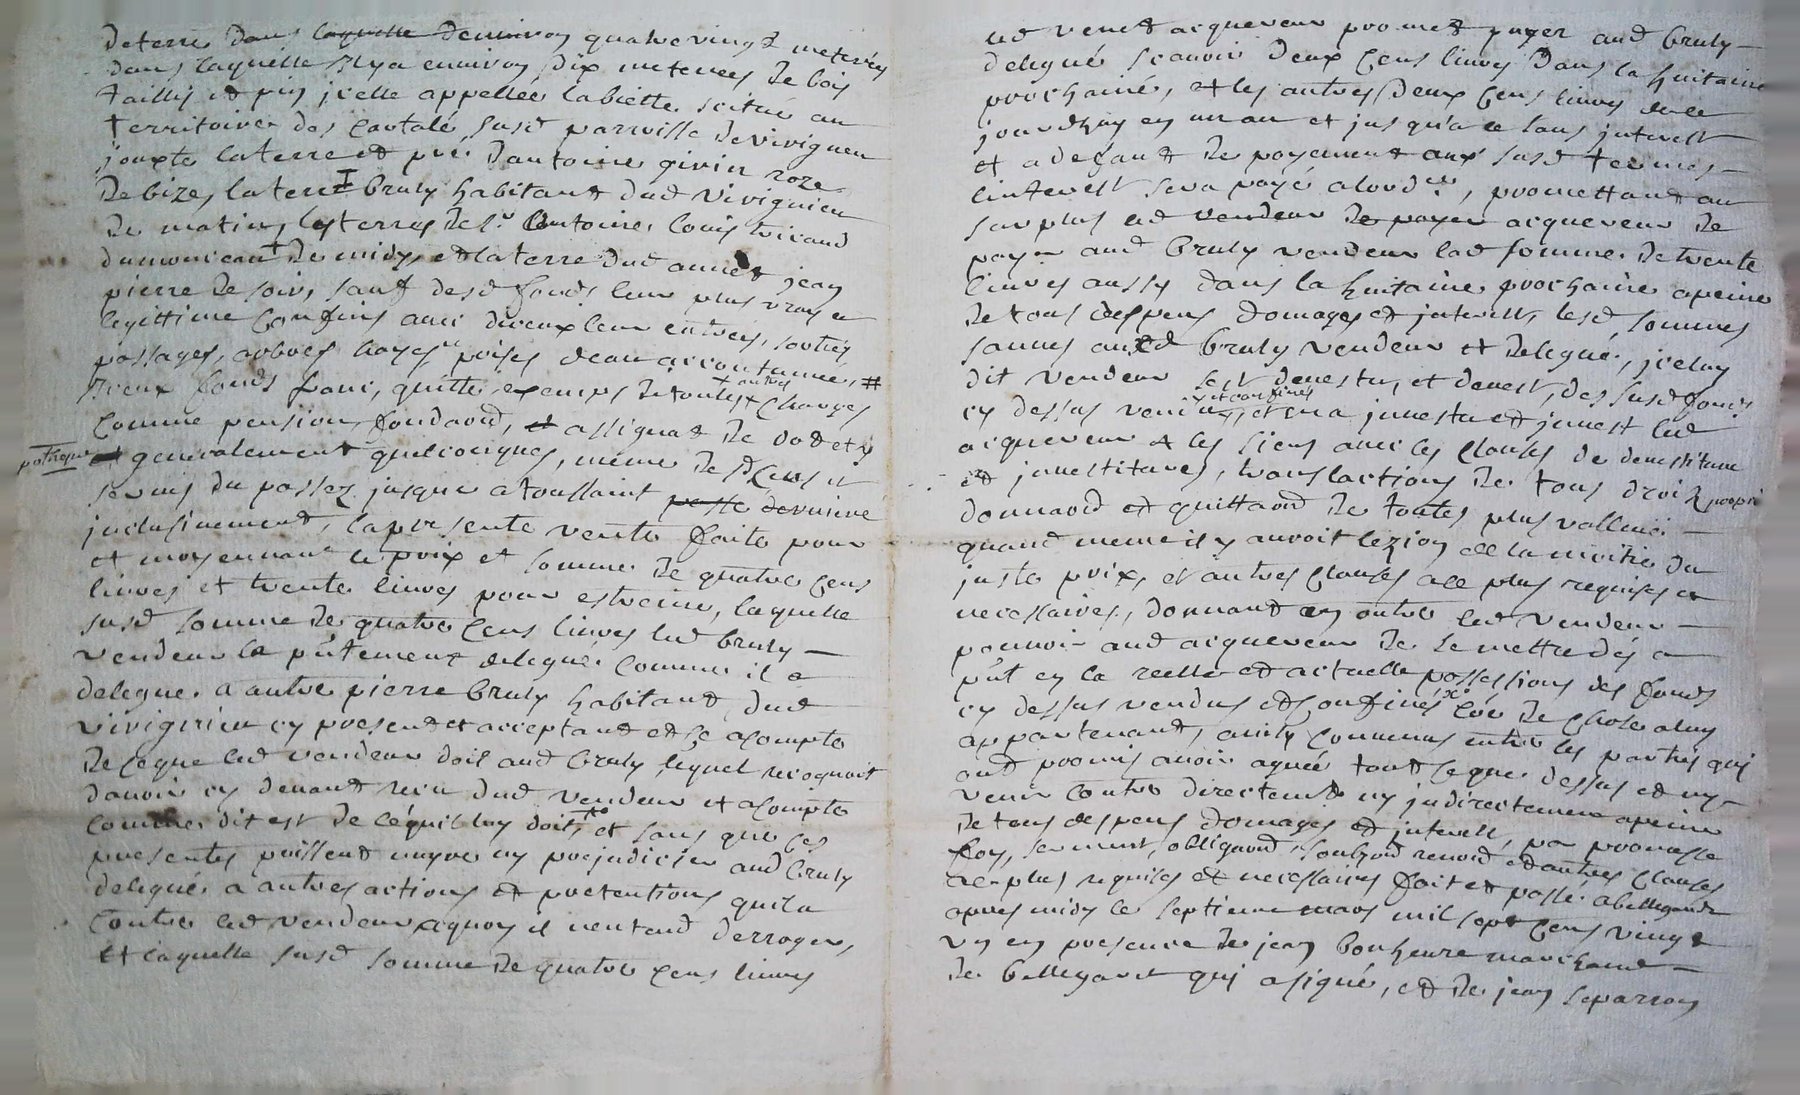 de terre dans laquelle denviron quatre vingt meterées
dans laquelle il y a environ dix meterees de bois
taillis et puy icelle appellee labiette scitué au
territoire des cartale susd parroisse de vivignieu
jouxte laterre et pré dantoine givin roze
de bize, la terre bruly habitant dud vivignieu
de matin, les terres de sr antoine louis
de midy, et la terre dud annet jean
pierre de soir, sauf desd fonds leur plus vrais et
legittime confins avec diceux leur entrees, sorties
passages, arbres hayes prises deau accoutumées, #
diceux fonds franc, quitte, exempts de toutes + autres charges
comme pension, fondaõn, et assignat de dot et hy
potheque et generalement quelconques, méme de cens et
servis du passez jusque a toussaint passé derniére
inclusivement, la presente vente faite pour
et moyennant le prix et somme de quatre cens
livres et trente livres pour estreine, laquelle
susd somme de quatre cens livres led bruly
vendeur a p̃ñtement delegué comme il a
delegue a autre pierre bruly habitant dud
vivignieu cy present et acceptant et ce acompte
de ceque led vendeur doit aud bruly lequel recognoit
davoir cy devant receu dud vendeur et acompte
comme dit est de cequil luy doit, et sans que ces
presentes puissent nuyre ny prejudicier aud bruly
delegué a autres actions et pretentions quil a
contre led vendeur aquoy il nentend derroger,
et laquelle susd somme de quatre cens livres
led venet acquereur promet payer aud bruly
delegué scavoir deux cens livres dans la huitaine
prochaine, et les autres deux cens livres de ce
jourdhuy en un an et jusqu'a ce sans interest
et a defaut de payement aux susd termes
linterest sera payé alordre, promettant au
surplus led vendeur de payer acquereur de
payer aud bruly vendeur lad somme de trente
livres aussy dans la huitaine prochaine apeine
de tous despens domages et interest, lesd sommes
sauves aud bruly vendeur et delegué, iceluy
dit vendeur sest devestu, et devest, des susd fonds
cy dessus vendus, et confinés, et en a investu et invest led
acquereur et les siens avec les clauses de devestiture
et investitures, translactions de tous droit propri
donnaõn et quittaõn de toutes plus vallence
quand meme il y auroit lezion de la moitie du
juste prix, et autres clauses a ce plus requises et
necessaires, donnant en outre led vendeur
pouvoir aud acquereur de se mettre dés a
p̃ñt en la reelle et actuelle possessions des fonds
cy dessus vendus et confinés coe de chose aluy
appartenant, ainsy convenus entre les parties qui
ont promis avoir agreé tout ceque dessus et ny
venir contre directemt ny indirectement apeine
de tous despens domages et interest, par promesse
foy, serment, obligaõn, soubzõn renõn et autres clauses
a ce plus requises et necessaires fait et passé a bellegarde
apres midy le septieme mars mil sept cens vingt
un en presence de jean bonheure marchand
de bellegarde qui a signé, et de jean separrou